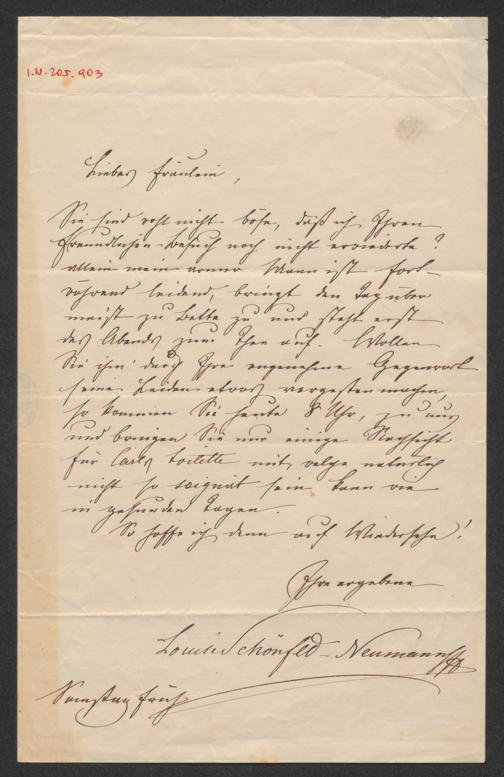 I.N. 205.903
Liebes Fräulein,
Sie sind wohl nicht böse, daß ich Ihren
freundlichen Besuch noch nicht erwiederte?
allein mein armer Mann ist fort-
während leidend, bringt den Tag über
meist zu Bette zu und steht erst
des Abends zum Thee auf. Wollen
Sie ihn durch Ihre angenehme Gegenwart
seine Leiden etwas vergessen machen,
so kommen Sie heute 8 Uhr, zu uns
und bringen Sie nur einige Nachsicht
für Carls toilette mit, welche natürlich
nicht so soignirt sein kann wie
in gesunden Tagen.
So hoffe ich denn auf Wiedersehn!
Ihre ergebene
Louise Schönfeld-Neumann
Samstag früh